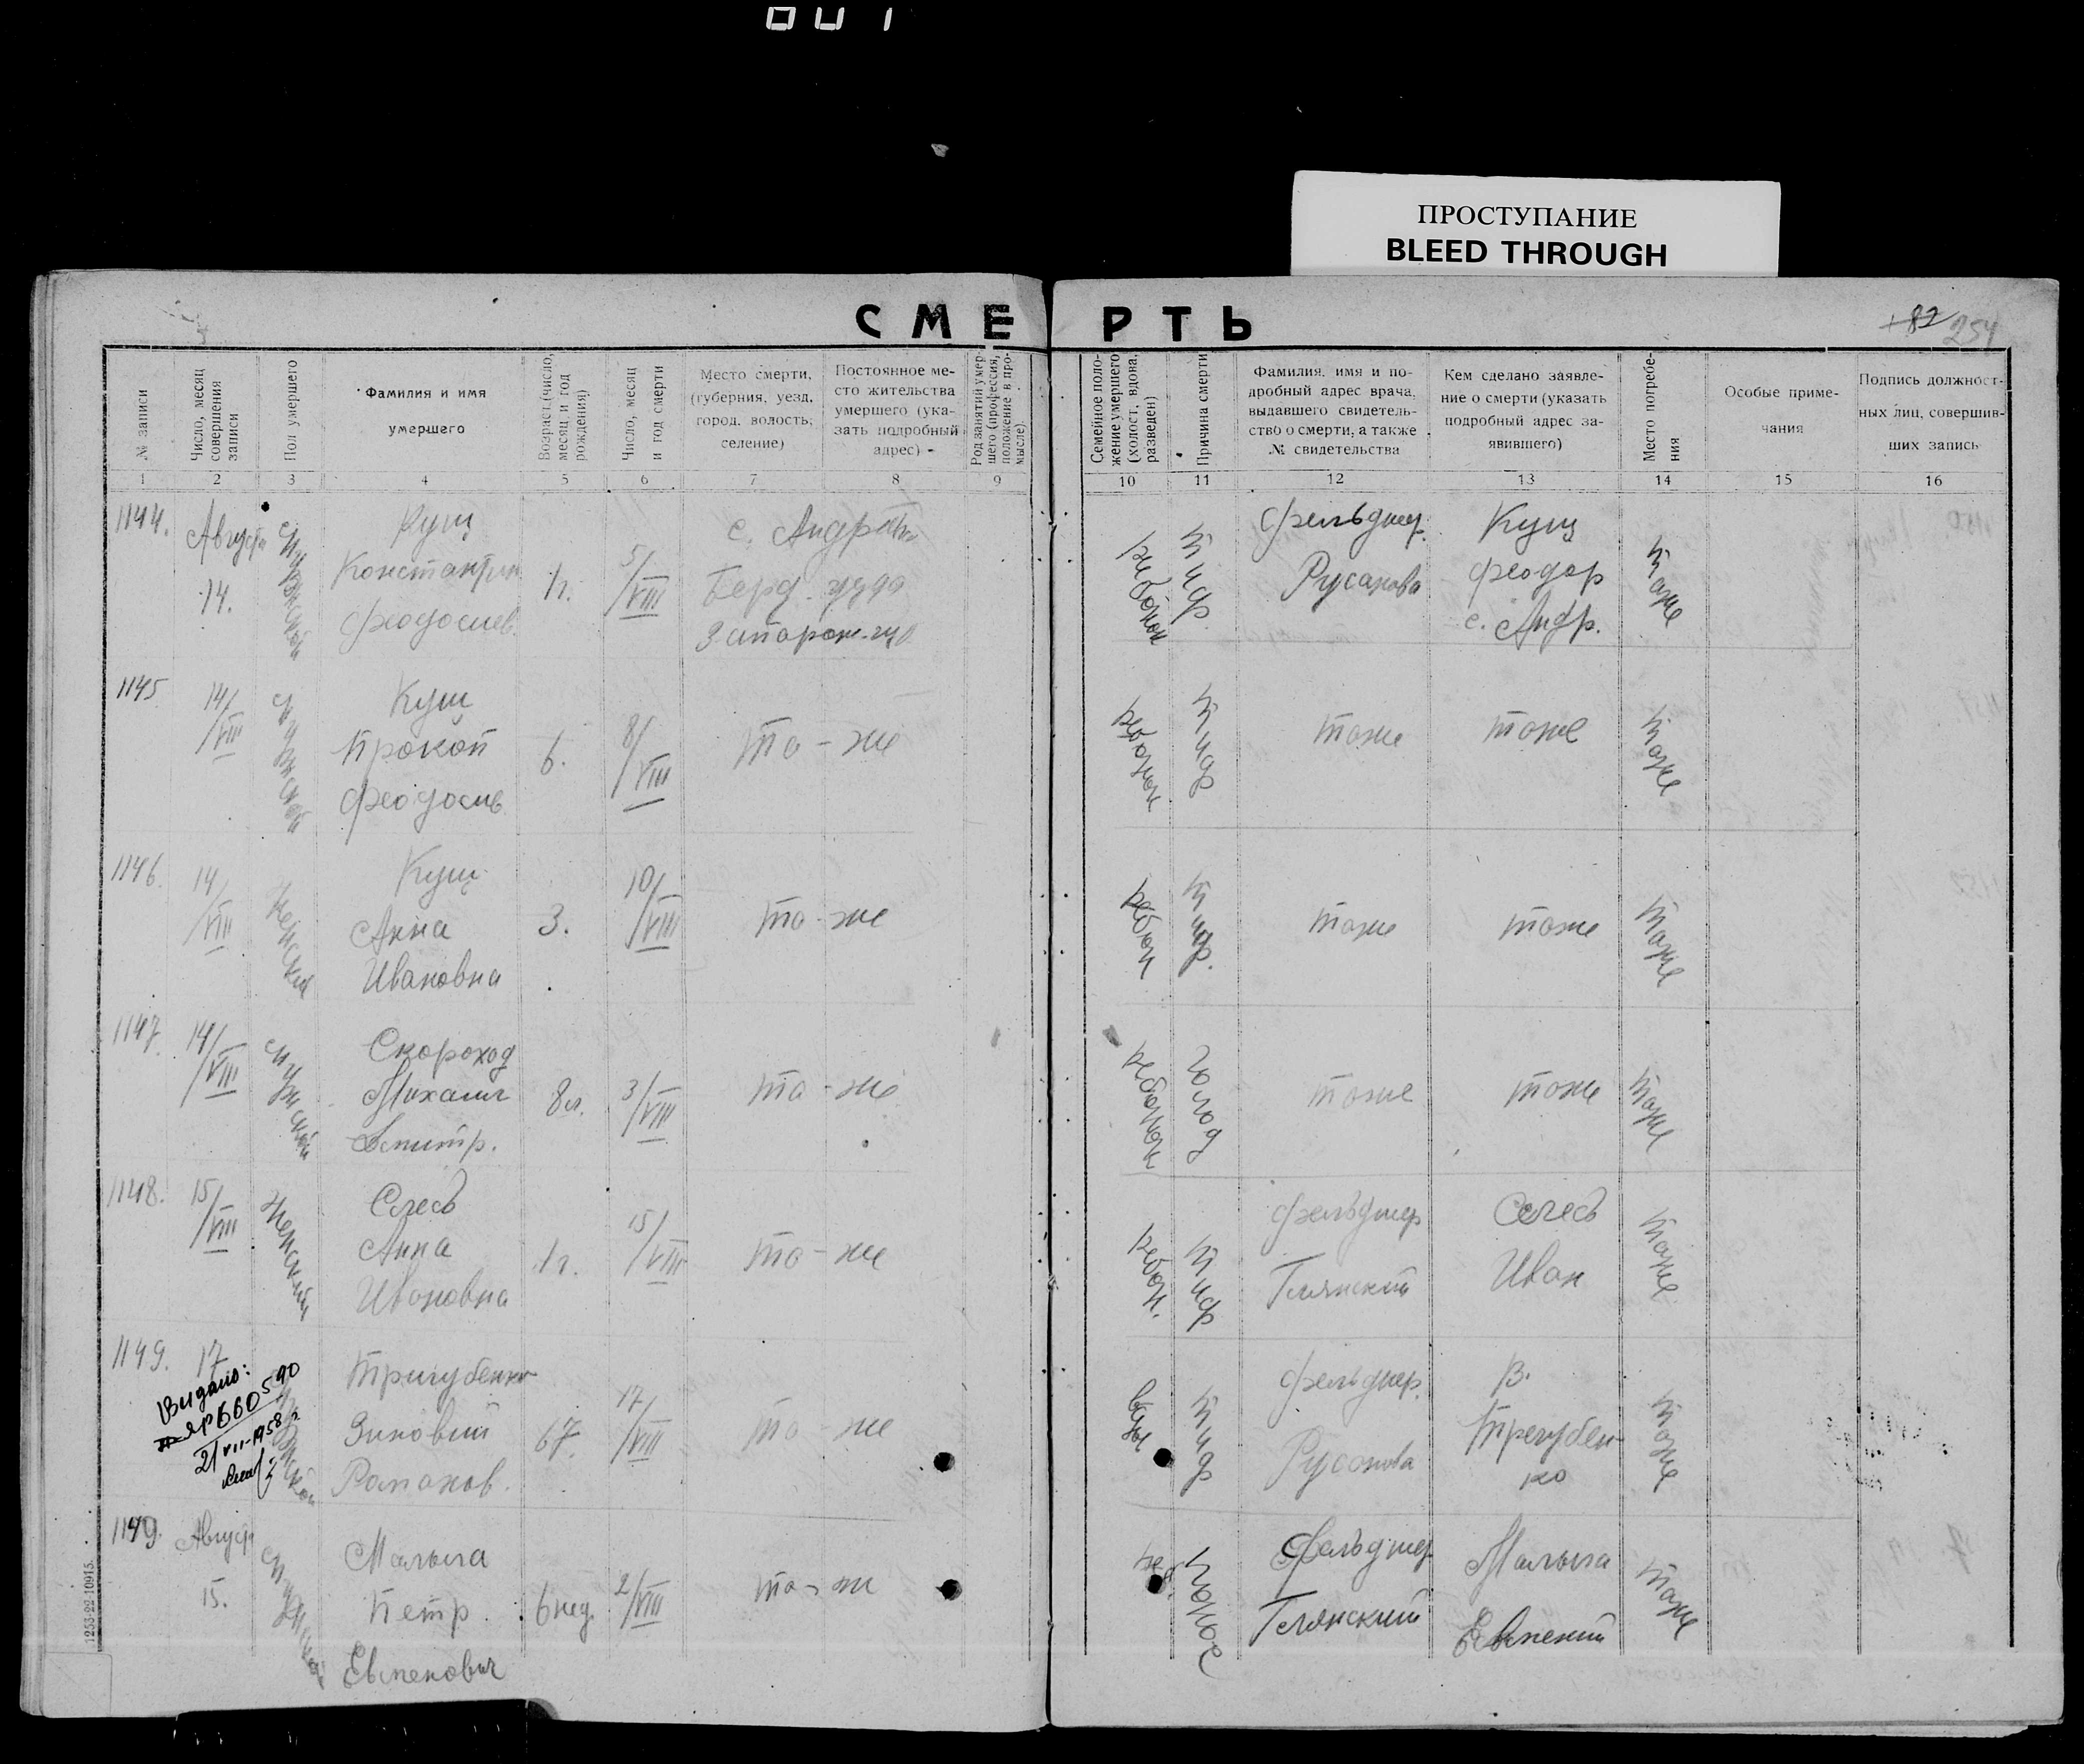 001
ПРОСТУПАНИЕ
BLEED THROUGH
СМЕРТЬ
+82 254
№ записи
Число, месяц
совершения
записи
Пол умершего
Фамилия и имя
умершего
Возраст (число,
месяц и год
рождения)
Число, месяц
и год смерти
Место смерти,
(губерния, уезд,
город, волость,
селение)
Постоянное ме-
сто жительства
умершего (ука-
зать подробный
адрес)
Род занятий умер-
шего (профессия,
положение в про-
мысле).
Семейное поло-
жение умершего
(холост, вдова,
разведен)
Причина смерти
Фамилия, имя и по-
дробный адрес врача,
выдавшего свидетель-
ство о смерти, а также
№ свидетельства
Кем сделано заявле-
ние о смерти (указать
подробный адрес за-
явившего)
Место погребе-
ния
Особые приме-
чания
Подпись должност-
ных лиц, совершив-
ших запись
1 2 3 4 5 6 7 8 9 10 11 12 13 14 15 16
1144.
Август
14.
мужской
Кущ
Константин
Феодосиев.
1г.
5/VIII
с. Андр
Берд. уезда
Запорож. губ
ребёнок
тиф.
Фельдшер.
Русанова
Кущ
Феодор
с. Андр.
тоже
1145
14/VIII
мужской
Кущ
Прокоп
Феодосиев
6.
8/VIII
то - же
ребёнок
тиф
тоже
тоже
тоже
1146.
14/VIII
женский
Кущ
Анна
Ивановна
3.
10/VIII
то - же
ребён
тиф.
тоже
тоже
тоже
1147.
14/VIII
мужской
Скороход
Михаил
Дмитр.
8л.
3/VIII
то - же
ребёнок
голод
тоже
тоже
тоже
1148.
15/VIII
женский
Слесь
Анна
Ивановна
1г.
15/VIII
то - же
ребён.
тиф
Фельдшер
Гилянский
Слесь
Иван
тоже
1149.
17
Видано:
ЯР 660590
21/VII-1958 г
мужской
Тригубенко
Зиновий
Романов.
67.
17/VIII
то - же
вдов
тиф
Фельдшер.
Русанова
В.
Трегубен-
ко
тоже
1149.
Август
15.
мужской
Малыга
Петр.
Евменович
6 нед.
2/VIII
то - ж
реб.
понос
Фельдшер
Гилянский
Малыга
Евмений
тоже
1253-22-10915.